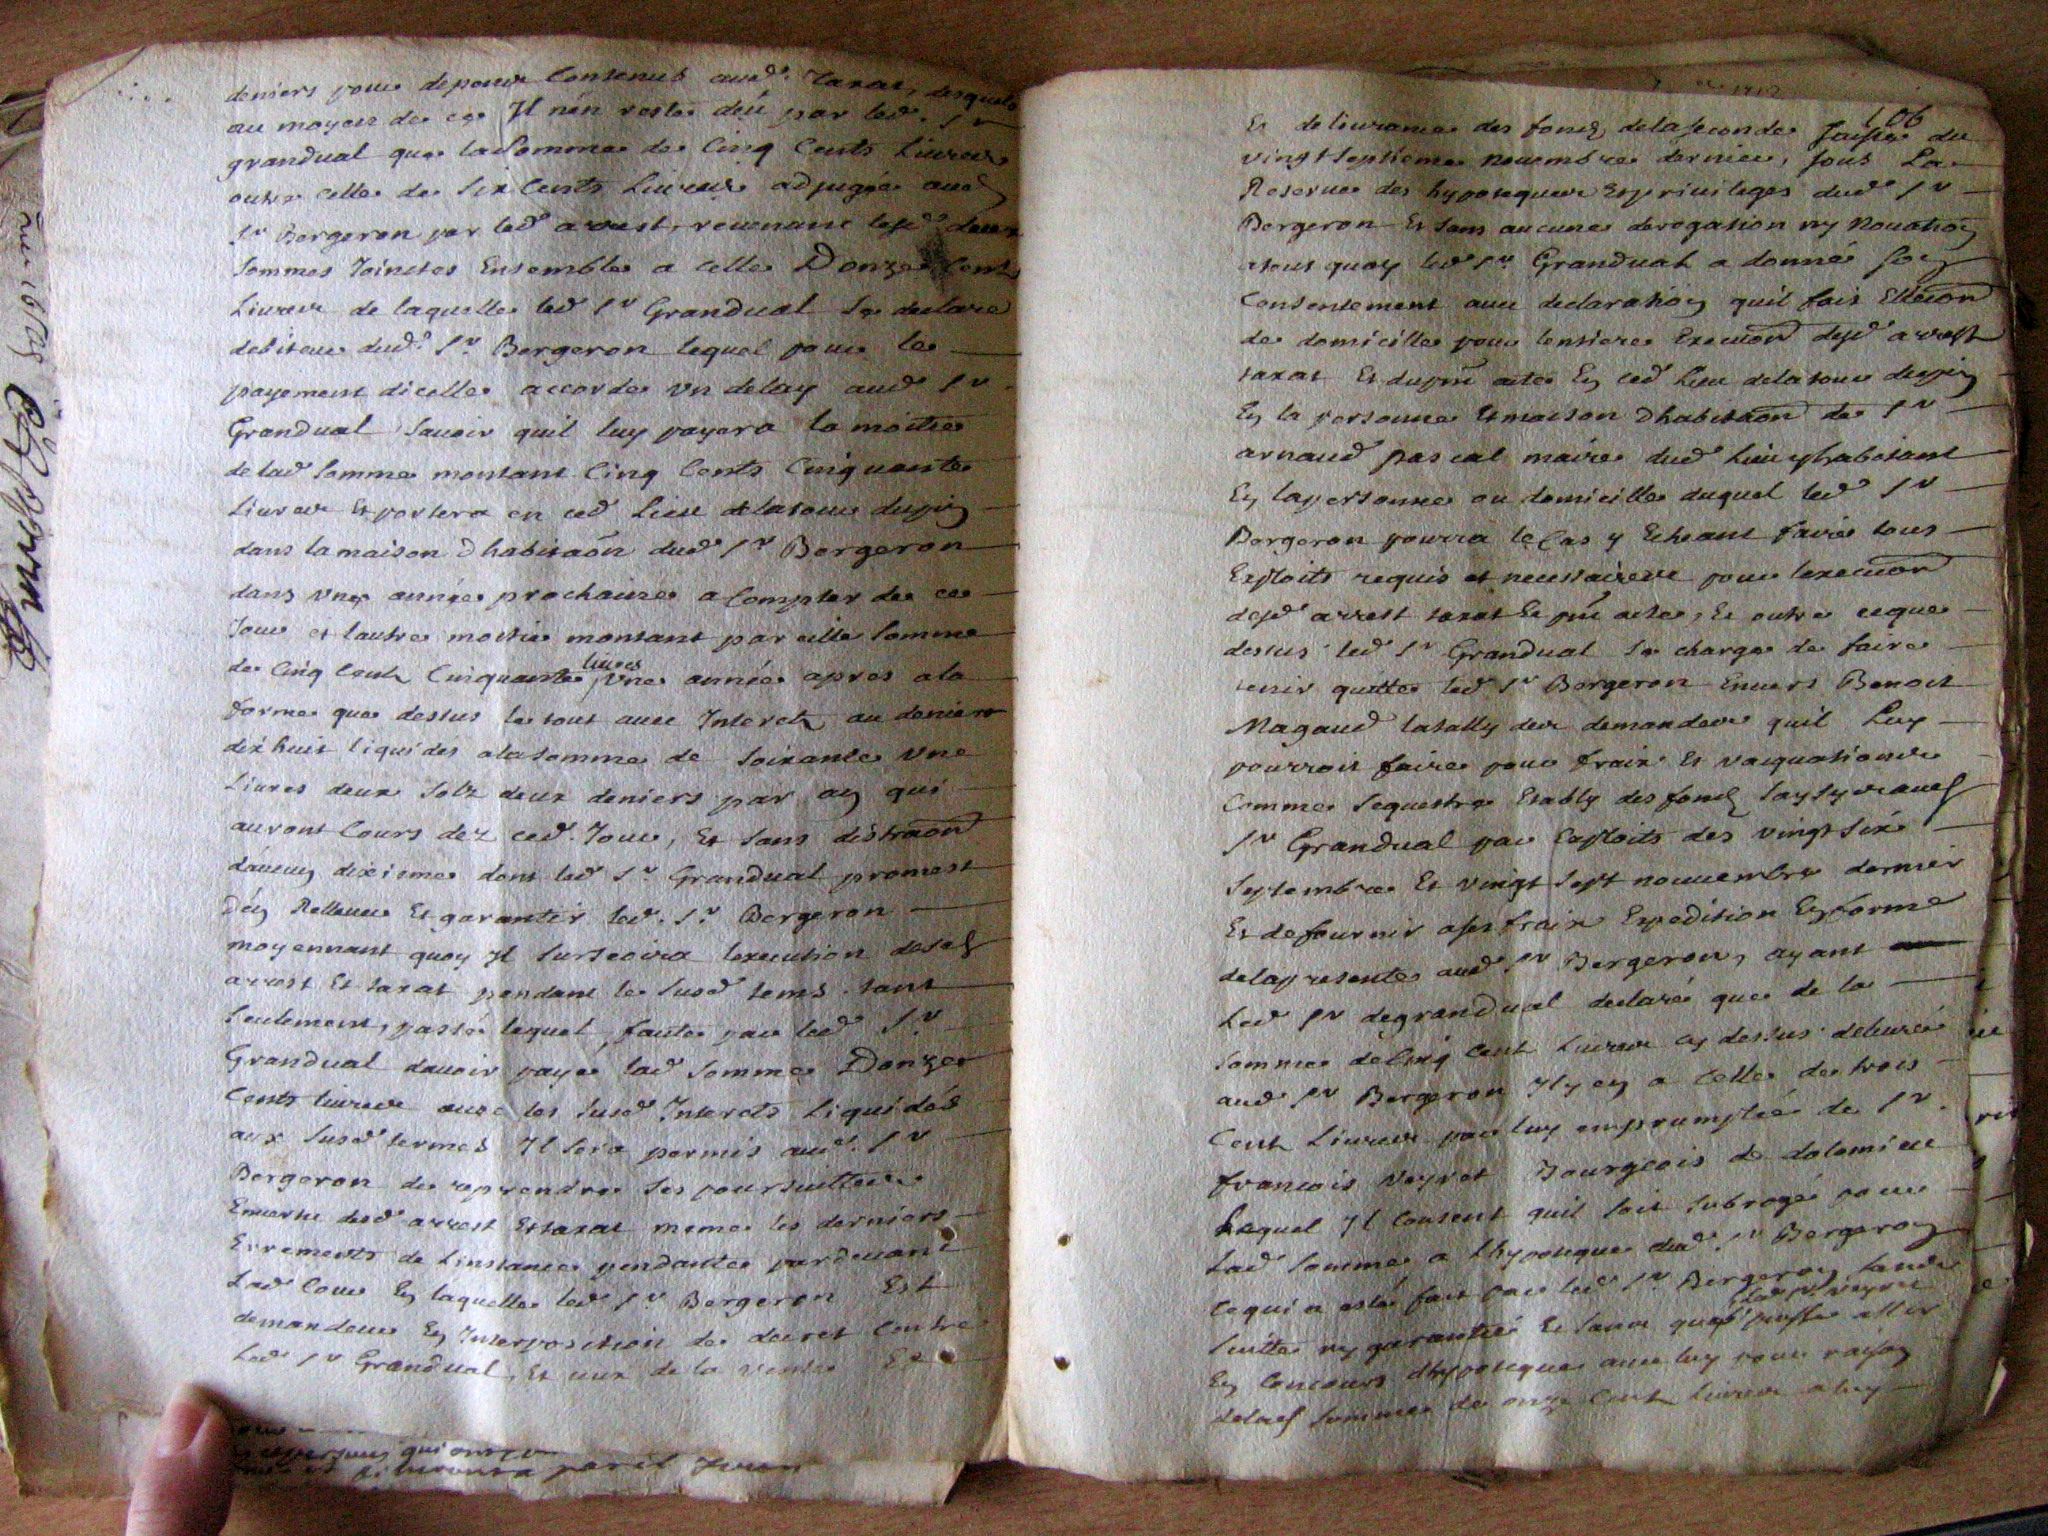 deniers pour depens Contenus aud. taxat, desquels
au moyen de ce Il nèn reste deü par led. Sr
grandual que la Somme de Cinq Cents Livres
outre celle de Six Cents Livres adjugée aud
Sr Bergeron par led arrest, revenant lesd. deux
Sommes Jointes Ensemble a celle Donze Cents
Livres de laquelle led Sr Grandual Se declare
debiteur dud. Sr Bergeron lequel pour le
payement dicelle accorde un delay aud Sr
Grandual Savoir quil luy payera la moitie
de lad Somme montant Cinq Cents Cinquante
Livres Et portera en ced Lieu de latour dupin
dans la maison Dhabitaon dud Sr Bergeron
dans une année prochaine a Compter de ce
Jour et lautre moitie montant pareille Somme
de Cinq Cents Cinquante livres une année apres a la
forme que dessus le tout avec Interets au denier
dix huit liquides a la somme de Soixante une
Livres deux Solz deux deniers par an qui
auront Cours dez ced. Jour, Et Sans distraon
daucun dixieme dont led Sr Grandual promest
den Rellever Et garantir led. Sr Bergeron
moyennant quoy Il Surseoira lexecution desd
arrest Et taxat pendant le Susd tems tant
Seulement, passé lequel, faute par led Sr
Grandual davoir payé lad Somme Donze
Cents livres avec les Susd Interets Liquidés
aux Susd termes Il Sera permis aud. Sr
Bergeron de reprendre Ses poursuittes
Envertu desd arrest Et taxat meme les derniers
Erremens de Linstance pendante pardevant
Lad Cour En laquelle led Sr Bergeron Est
demandeur En Interposition de decret Contre
Led Sr Grandual, Et aux de la vente Et
106
Et delivrance des fonds, de la Seconde Saisie du
vingt Septieme Novembre dernier, Sous La
Reserve des hypoteques Et privileges dud Sr
Bergeron Et Sans aucune derogation ny Novation
atout quoy led Sr Grandual a donné Son
Consentement avec declaration quil fait Ellecon
de domicille pour lentiere Execuon desd arrest
taxat Et du pnt acte En ced Lieu de latour dupin
En la personne Et maison Dhabitaon de Sr
arnaud pascal maire dud Lieu y habitant
En la personne ou domicille duquel led Sr
Bergeron pourra le Cas y Echeant faire tous
Exploits requis et necessaires pour lexecuon
desd arrest taxat Et pnt acte, Et outre ceque
dessus led Sr Grandual Se charge de faire
tenir quitte led Sr Bergeron Envers Benoit
Magaud des demandes quil Luy
pourroit faire pour fraix Et vacquations
Comme Sequestre Etably des fonds Saysys aud
Sr Grandual par Exploits des vingt Six
Septembre Et vingt Sept nouvembre dernier
Et de fournir a ses fraix Expedition En forme
de la presente aud Sr Bergeron, ayant
Led Sr de grandual declaré que de la
Somme de Cinq Cent Livres cy dessus delivrée
aud Sr Bergeron Il y en a Celle de trois
Cent Livres par luy empruntée de Sr
francois Veyret Bourgeois de dolomieu
Lequel Il Consent quil Soit Subrogé pour
Lad Somme a Lhypoteque dud. Sr Bergeron
Ce qui a esté fait par led Sr Bergeron Sans
Suitte ny garantie Et Sans que led Sr veyret puisse aller
En Concours dhypoteque avec luy pour raison
delad Somme de onze Cent Livres a luy